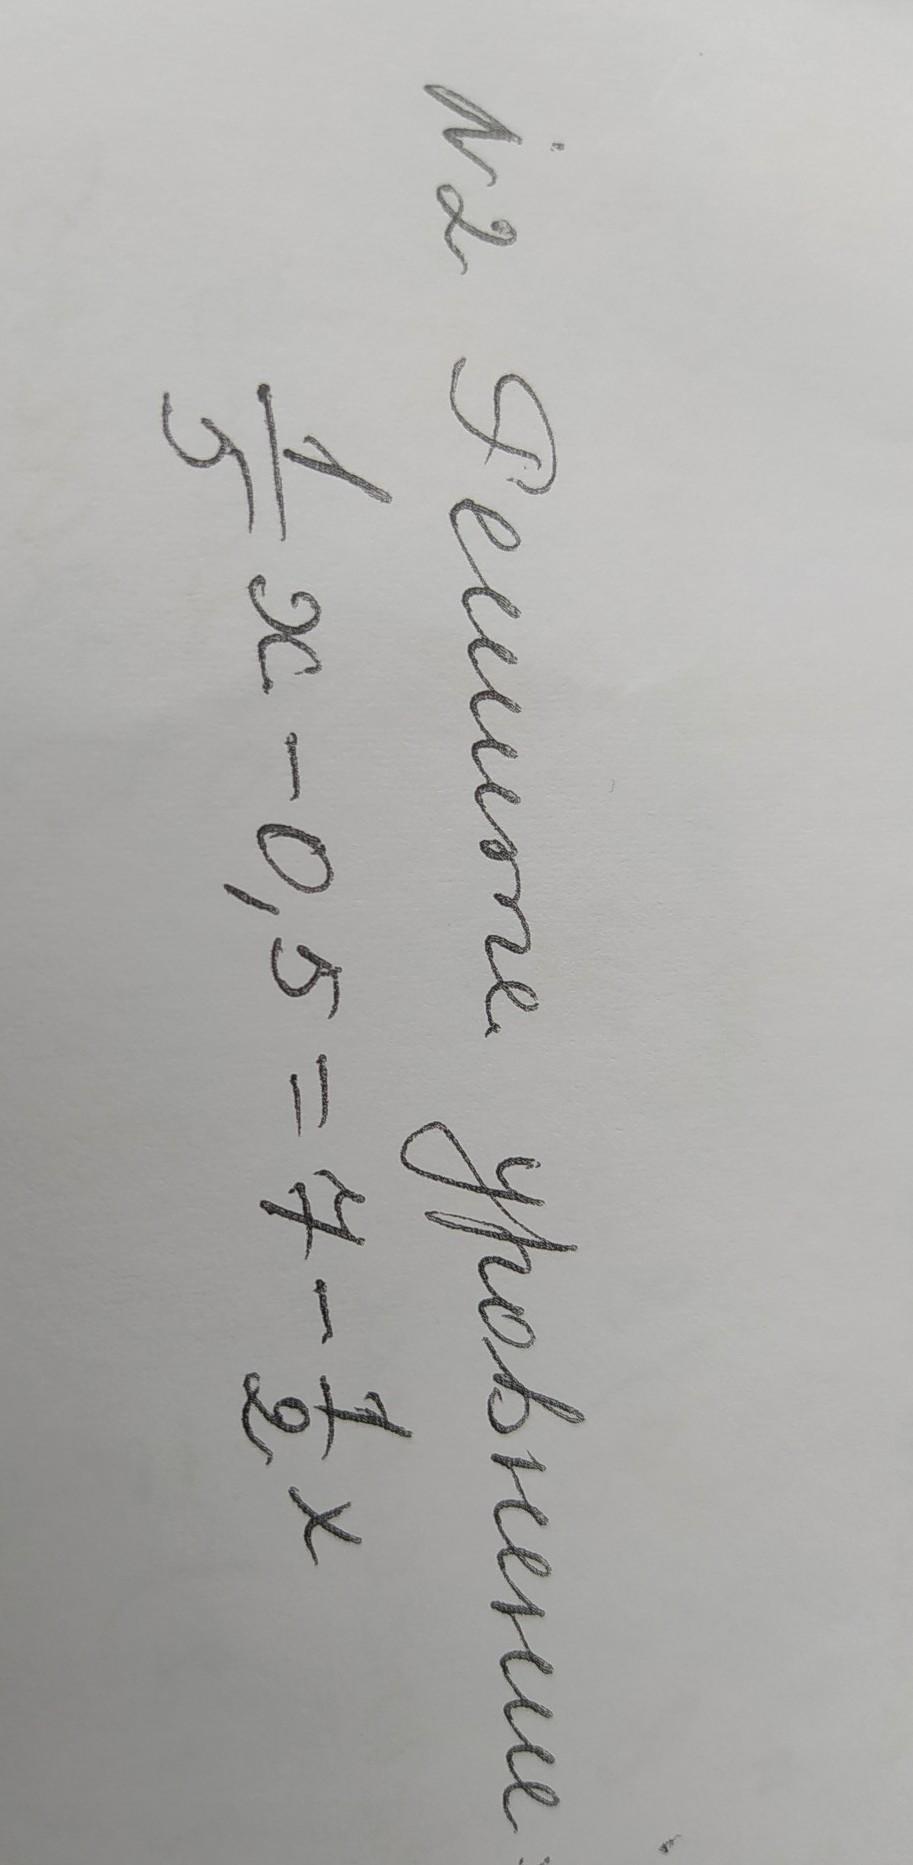 №2 Решите уравнение:
1/5 x - 0,5 = 7 - 1/2 x